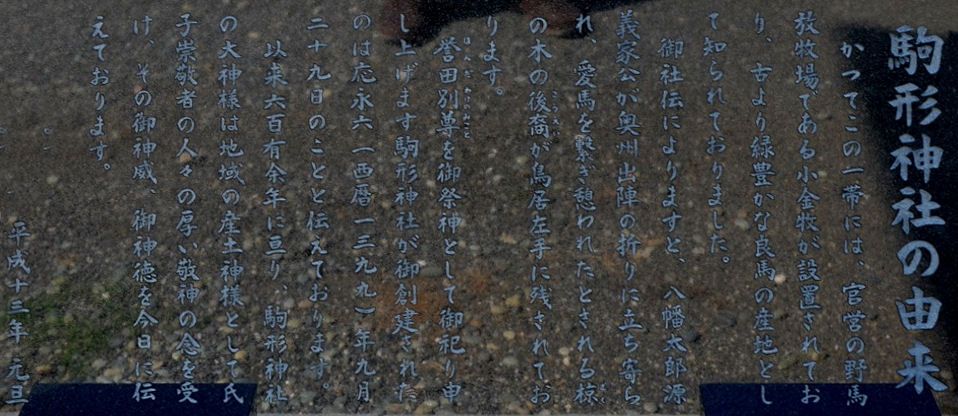 駒形神社の由来
かつてこの一帯には、官営の野馬
放牧場である小金牧が設置されてお
り、古より緑豊かな良馬の産地とし
て知られておりました。
御社伝によりますと、八幡太郎源
義家公が奥州出陣の折りに立ち寄ら
れ、愛馬を繋ぎ憩われたとされる椋
の木の後裔が鳥居左手に残されてお
ります。
誉田別尊を御祭神として御祀り申
し上げます駒形神社が御創建された
のは応永六(西暦一三九九)年九月
二十九日のことと伝えております。
以来六百有余年に亘り、駒形神社
の大神様は地域の産土神様として氏
子崇敬者の人々の厚い敬神の念を受
け、その御神威、御神徳を今日に伝
えております。
平成十三年 元旦